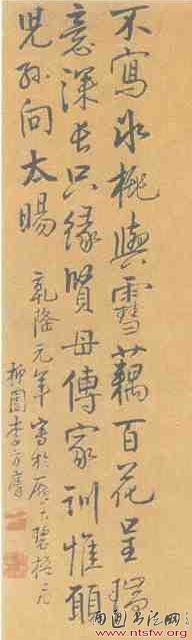 不寫冰桃與雪藕百花呈瑞
意深長只緣賢母傳家訓惟願
兒孫向太陽
乾隆元年寫於
抑園李方膺
南通书法网
www.ntsfw.org